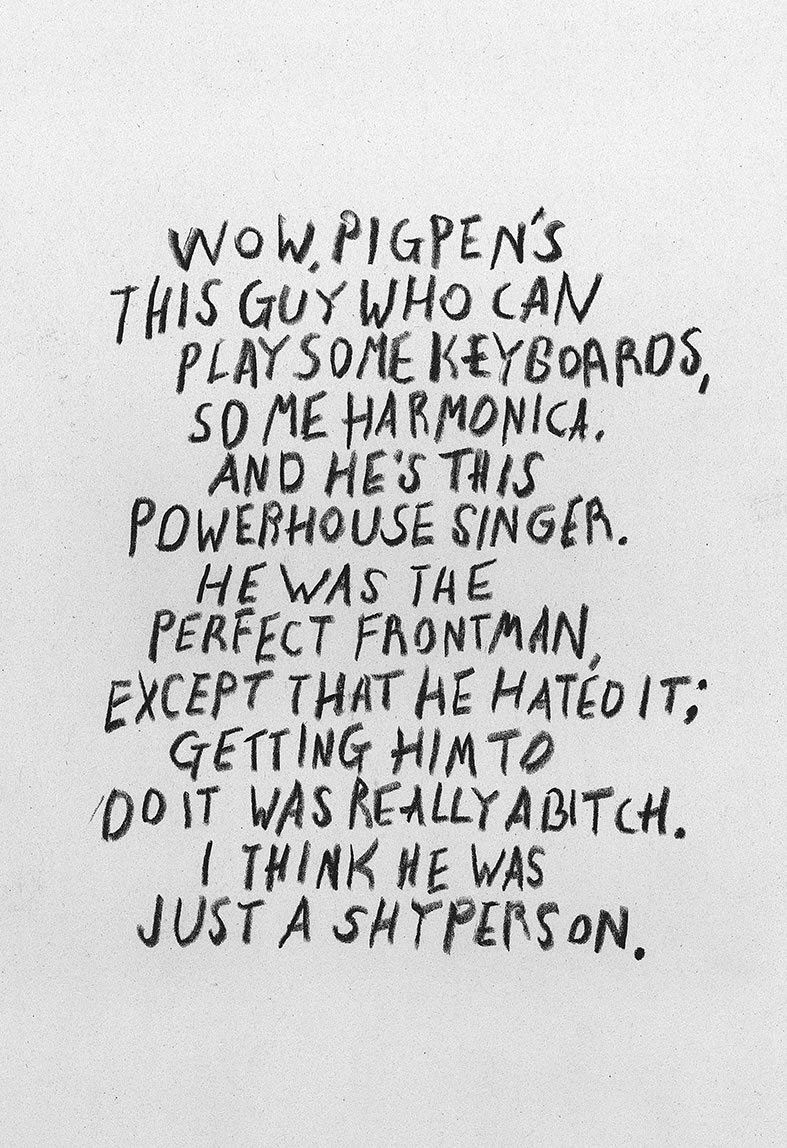 WOW, PIGPEN'S
THIS GUY WHO CAN
PLAY SOME KEYBOARDS,
SOME HARMONICA.
AND HE'S THIS
POWERHOUSE SINGER.
HE WAS THE
PERFECT FRONTMAN,
EXCEPT THAT HE HATED IT;
GETTING HIM TO
DO IT WAS REALLY A BITCH.
I THINK HE WAS
JUST A SHY PERSON.